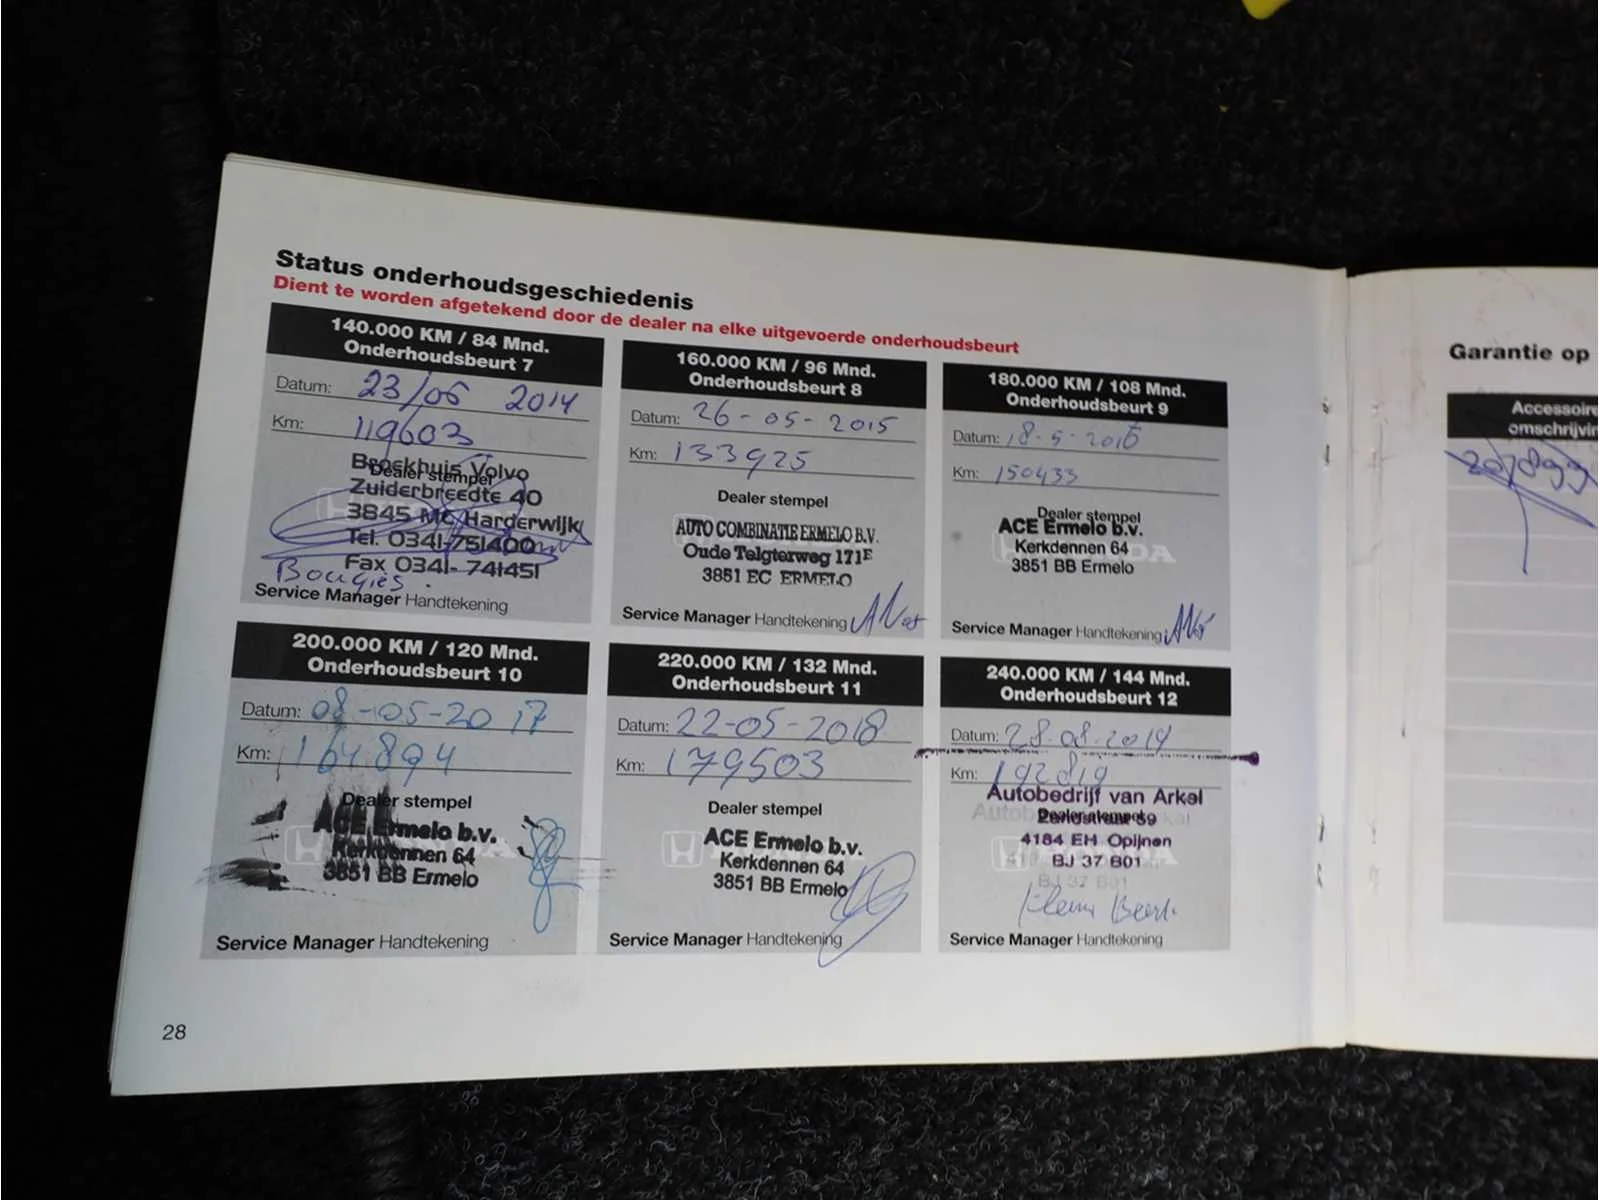 Status onderhoudsgeschiedenis
Dient te worden afgetekend door de dealer na elke uitgevoerde onderhoudsbeurt
140.000 KM / 84 Mnd.
Onderhoudsbeurt 7
Datum: 23/06 2014
Km: 119603
Brockhuis Volvo
Dealer stempel
Zuiderbreedte 40
3845 MC Harderwijk
Tel. 0341-751400
Fax 0341-741451
Bougies
Service Manager Handtekening
160.000 KM / 96 Mnd.
Onderhoudsbeurt 8
Datum: 26-05-2015
Km: 133925
Dealer stempel
AUTO COMBINATIE ERMELO B.V.
Oude Telgterweg 171E
3851 EC ERMELO
Service Manager Handtekening
180.000 KM / 108 Mnd.
Onderhoudsbeurt 9
Datum: 18-5-2016
Km: 150433
Dealer stempel
ACE Ermelo b.v.
Kerkdennen 64
3851 BB Ermelo
Service Manager Handtekening
200.000 KM / 120 Mnd.
Onderhoudsbeurt 10
Datum: 08-05-2017
Km: 164894
Dealer stempel
ACE Ermelo b.v.
Kerkdennen 64
3851 BB Ermelo
Service Manager Handtekening
220.000 KM / 132 Mnd.
Onderhoudsbeurt 11
Datum: 22-05-2018
Km: 179503
Dealer stempel
ACE Ermelo b.v.
Kerkdennen 64
3851 BB Ermelo
Service Manager Handtekening
240.000 KM / 144 Mnd.
Onderhoudsbeurt 12
Datum: 28.08.2019
Km: 192819
Autobedrijf van Arkel
Dealer stempel
4184 EH Opijnen
BJ 37 B01
Service Manager Handtekening
28
Garantie op
Accessoire
omschrijvin